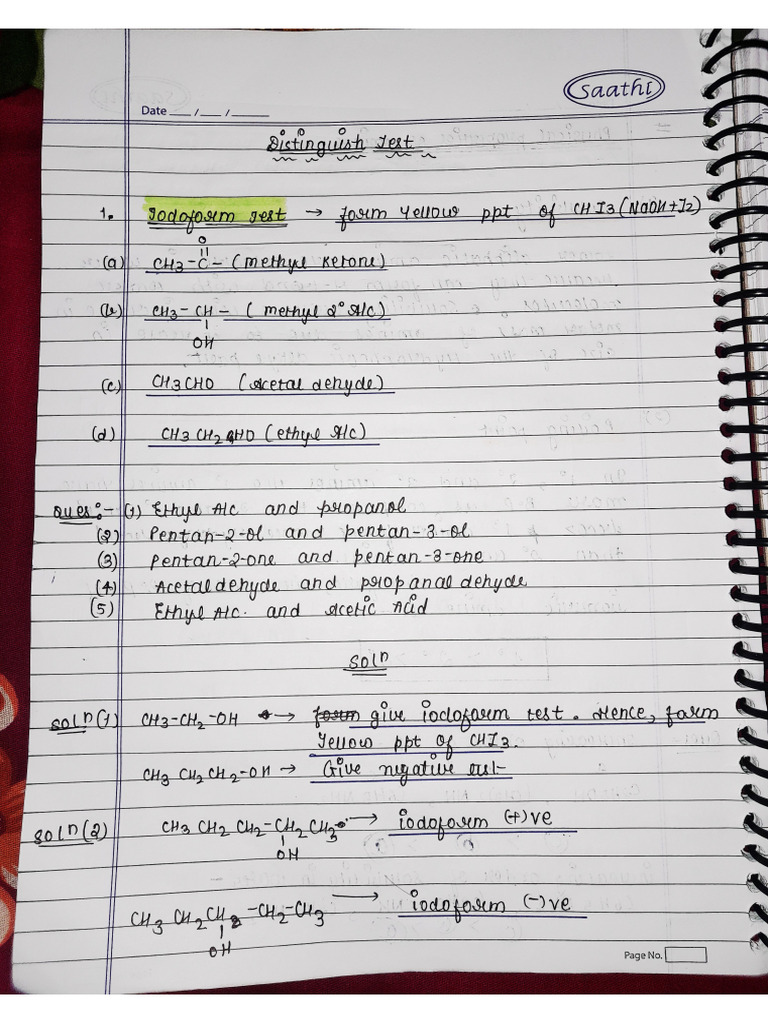 Saathi
Date __/__/__
Distinguish Test
1. Iodoform Test → form Yellow ppt of CHI3 (NaOH+I2)
O
||
(a) CH3-C- (methyl ketone)
(b) CH3-CH- (methyl 2° Alc)
|
OH
(c) CH3CHO (Acetaldehyde)
(d) CH3CH2 HO (ethyl Alc)
Ques:- (1) Ethyl Alc and propanol
(2) Pentan-2-ol and pentan-3-ol
(3) pentan-2-one and pentan-3-one
(4) Acetaldehyde and propanaldehyde
(5) Ethyl Alc. and Acetic Acid
Soln
Soln(1) CH3-CH2-OH → give iodoform test. Hence, form
Yellow ppt of CHI3.
CH3 CH2 CH2-OH → Give negative test
Soln(2) CH3 CH2 CH2-CH2 CH3 → iodoform (+)ve
|
OH
CH3 CH2 CH2-CH2-CH3 → iodoform (-)ve
|
OH
Page No.